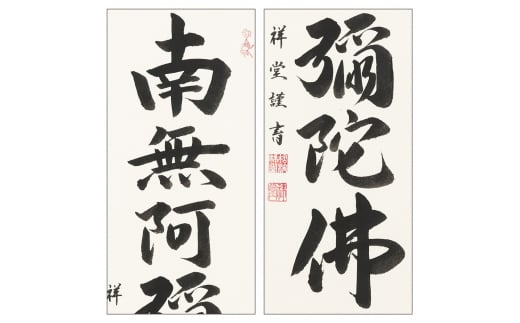 南無阿彌
祥
彌陀佛
祥堂謹書